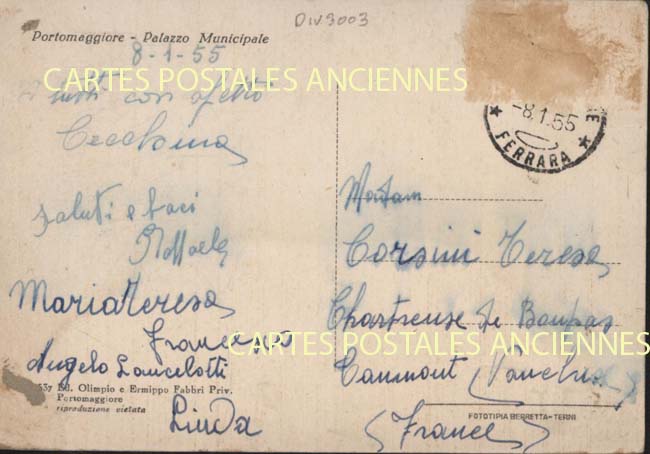 DIV3003
Portomaggiore - Palazzo Municipale
8-1-55
CARTES POSTALES ANCIENNES
tutti con afetto
-8.1.55
FERRARA
saluti e baci
Raffaele
Maria Teresa
Francesco
Angelo Lancelotti
Linda
Madam
Corsini Teresa
Chartreuse de Bonpas
CARTES POSTALES ANCIENNES
Caumont Vaucluse
(France)
537 Ed. Olimpio e Ermippo Fabbri Priv.
Portomaggiore
riproduzione vietata
FOTOTIPIA BERRETTA-TERNI